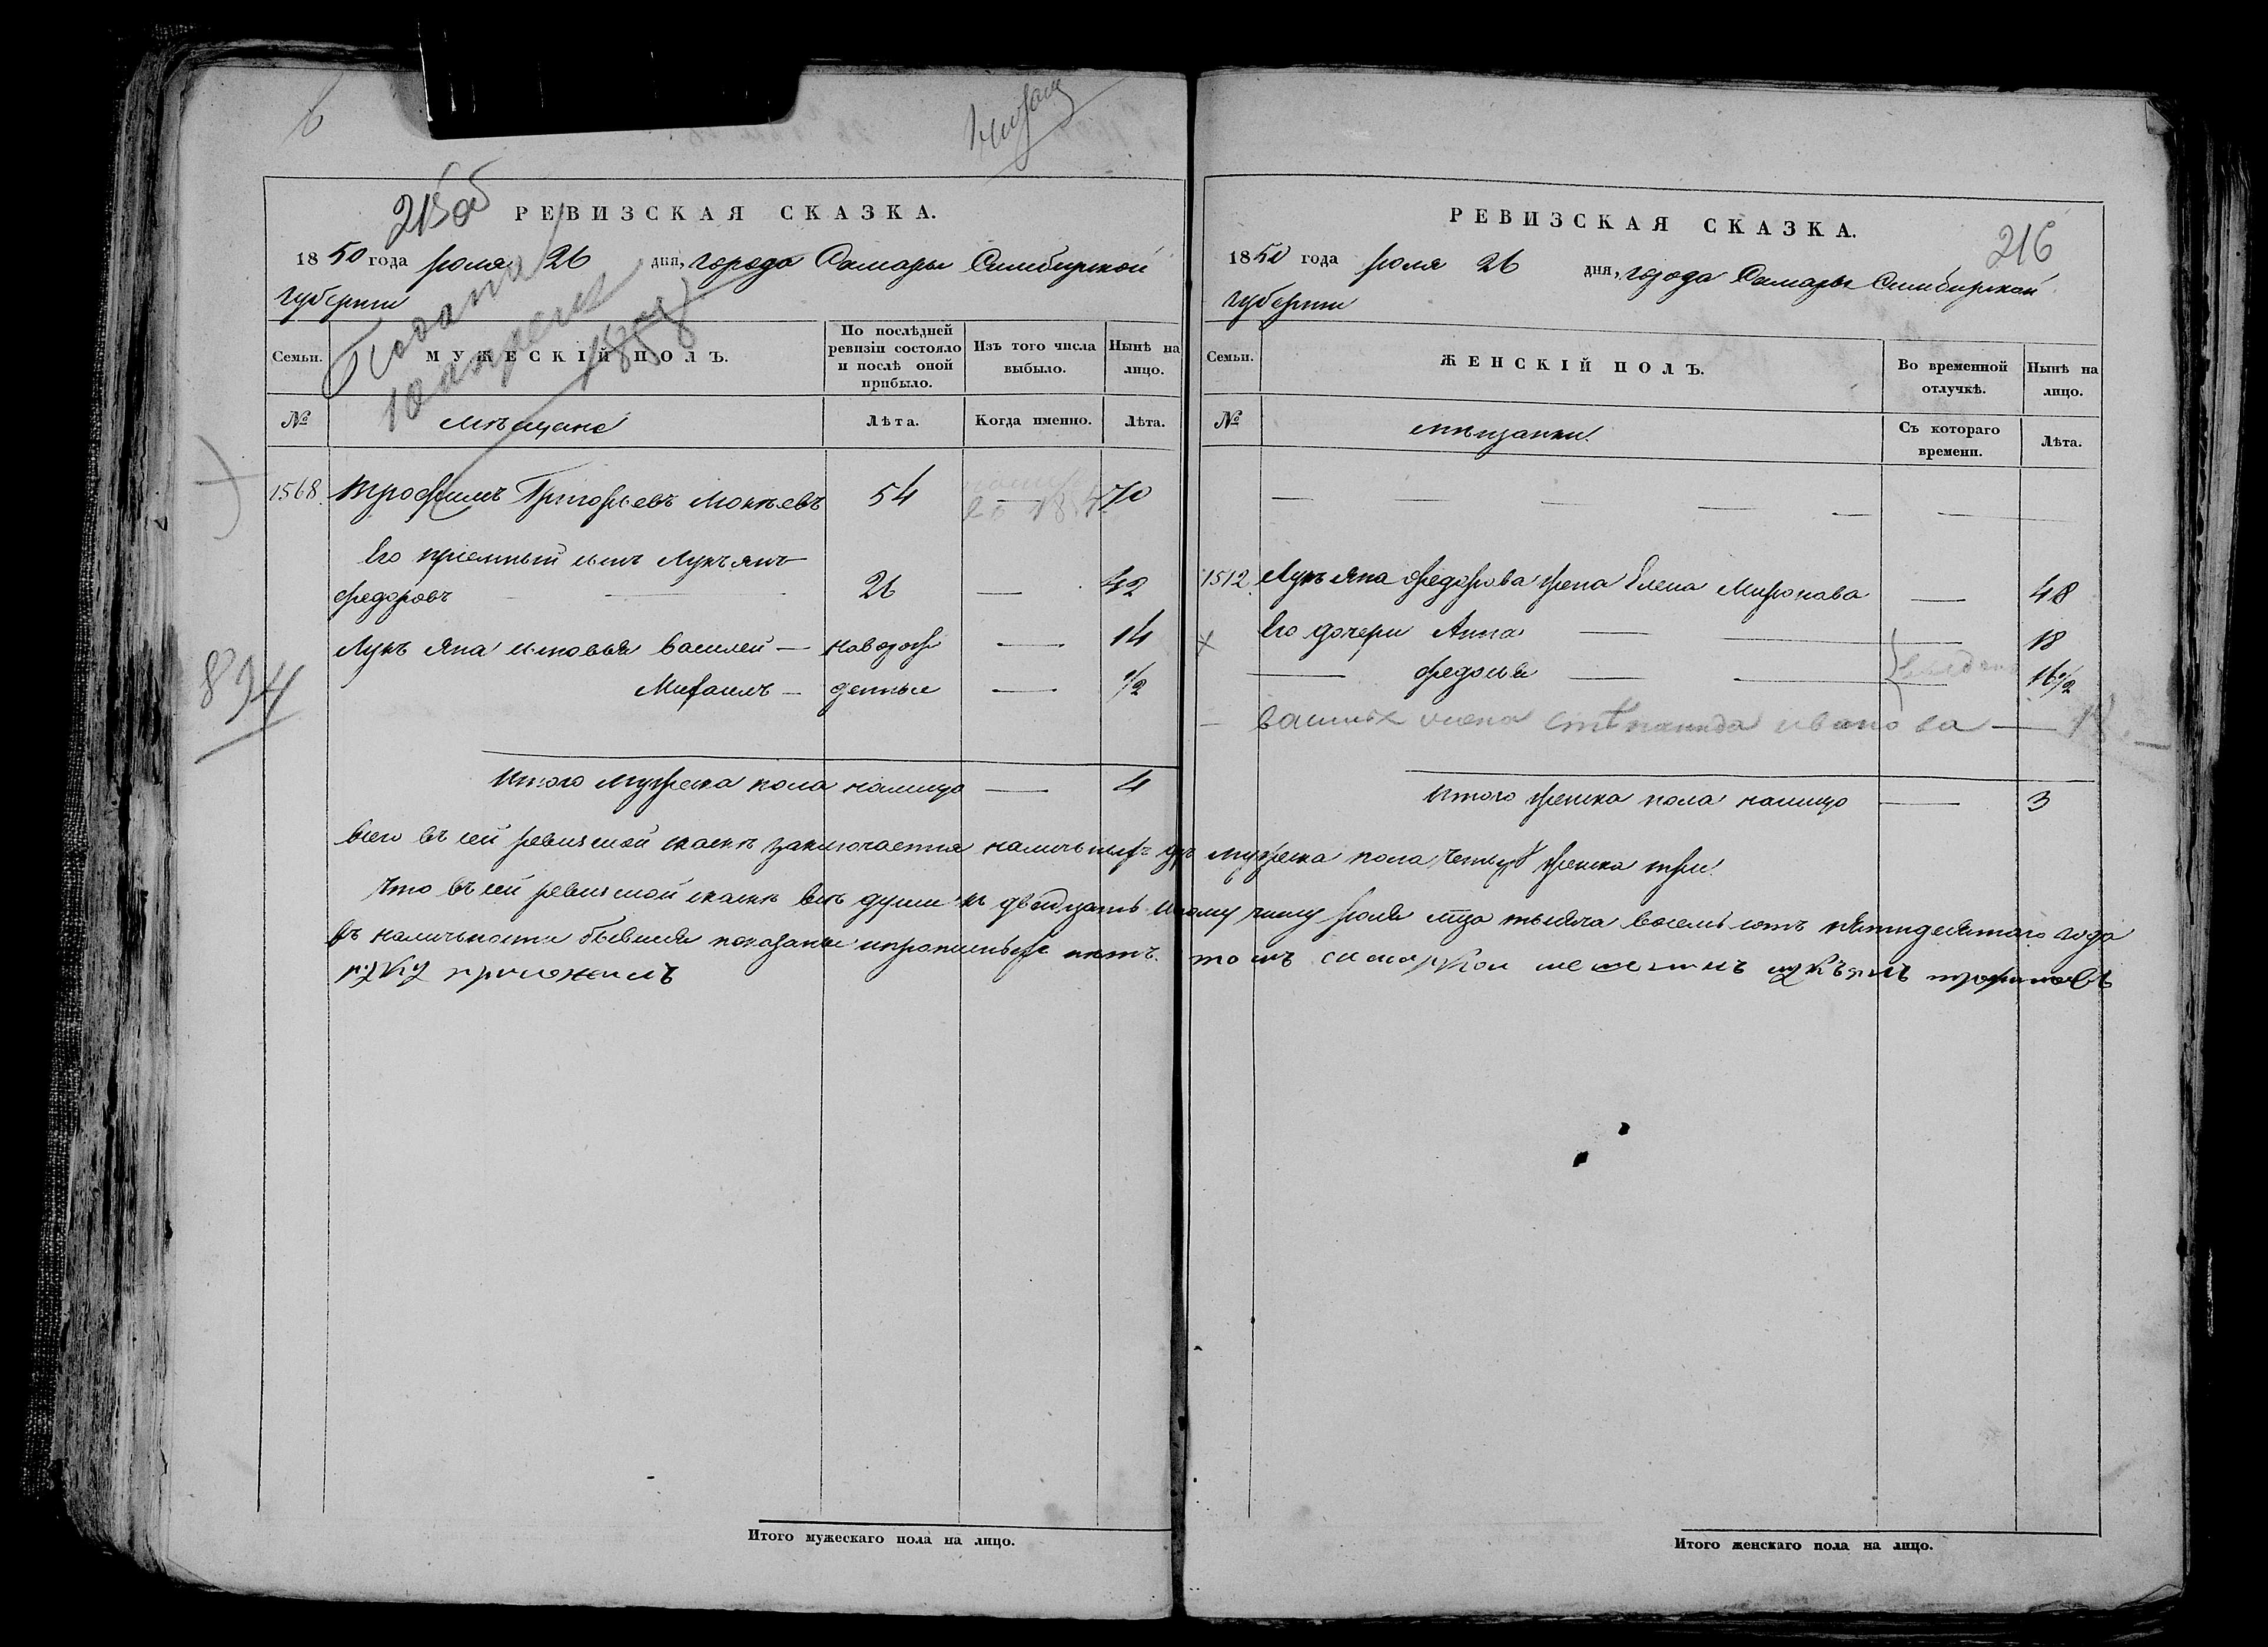 215об
РЕВИЗСКАЯ СКАЗКА.
1850 года Июля 26 дня, города Самары Симбирской
губернии
Подана
10 апреля
Семьи.
МУЖЕСКІЙ ПОЛЪ.
По послѣдней ревизіи состояло и послѣ оной прибыло.
Изъ того числа выбыло.
Нынѣ на лицо.
№
Мѣщане
Лѣта.
Когда именно.
Лѣта.
1568. Трофимъ Григорьевъ Мокѣевъ 54 70
Его приемный сынъ Лукъянъ
Федоровъ 26 — 42
Лукъяна сыновья Василей — новорож — 14
Михаилъ — денные — 1/2
894
Итого мужеска пола налицо — 4
216
РЕВИЗСКАЯ СКАЗКА.
1850 года Июля 26 дня, города Самары Симбирской
губернии
Семьи.
ЖЕНСКІЙ ПОЛЪ.
Во временной отлучкѣ.
Нынѣ на лицо.
№
мѣщанки.
Съ котораго времени.
Лѣта.
1512. Лукъяна Федорова жена Елена Миронова — 48
Его дочери Анна — 18
— Федосья — 16 1/2
жена Степанида Иванова — 18.
Итого женска пола налицо — 3
Всего въ сей ревизской сказкѣ заключается наличныхъ мужеска пола четыре женска три.
Что въ сей ревизской сказкѣ всѣ души къ двадцать числу Июля мца тысяча восемь сотъ пятидесятого года
въ наличности бывшия показаны и прописныхъ нѣтъ. въ томъ самарской мещенинъ лукъянъ трофимовъ
руку приложилъ
Итого мужескаго пола на лицо.
Итого женскаго пола на лицо.